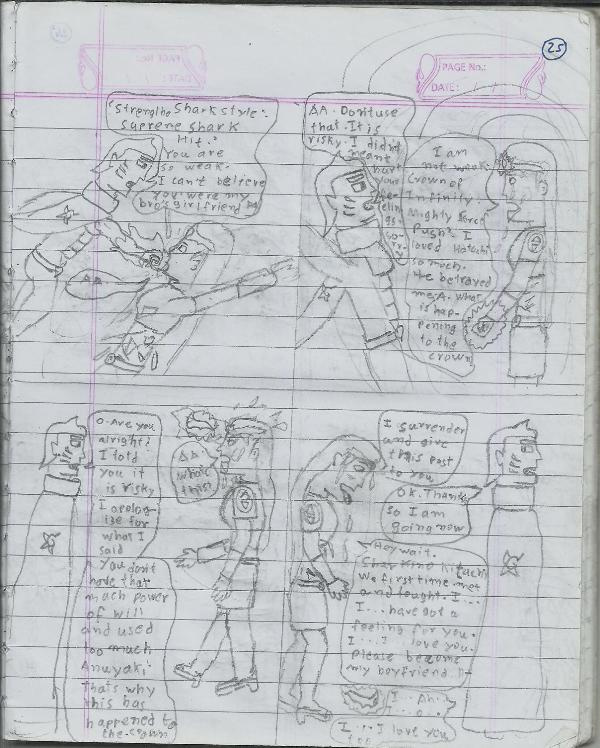 25
PAGE No.:
DATE: / /
Strengthe Shark style:
Supreme Shark
Hit.
You are
so weak.
I can't believe
you were my
bro's girlfriend
AA
AA. Don't use
that. It is
risky. I didn't
meant
hurt
your
fee
ling
so-
rry
I am
not weak.
Crown of
Infinity:
Mighty Force
Push. I
loved
so much.
He betrayed
me. A. what
is hap-
pening
to the
crown
O-Are you
alright?
I told
you it
is risky
I apolog-
ize for
what I
said
You don't
have that
much power
of will
and used
too much
Anuyaki
That's why
this has
happened to
the crown
AA
who's
this?
I surrender
and give
this post
to you.
OK. Thanks
so I am
going now
Hey wait.
Shark King Kitachi
We first time met
and fought. I...
I... have got a
feeling for you.
I... I love you.
Please become
my boyfriend.
I... Ah...
I... o...
I... I love you
too